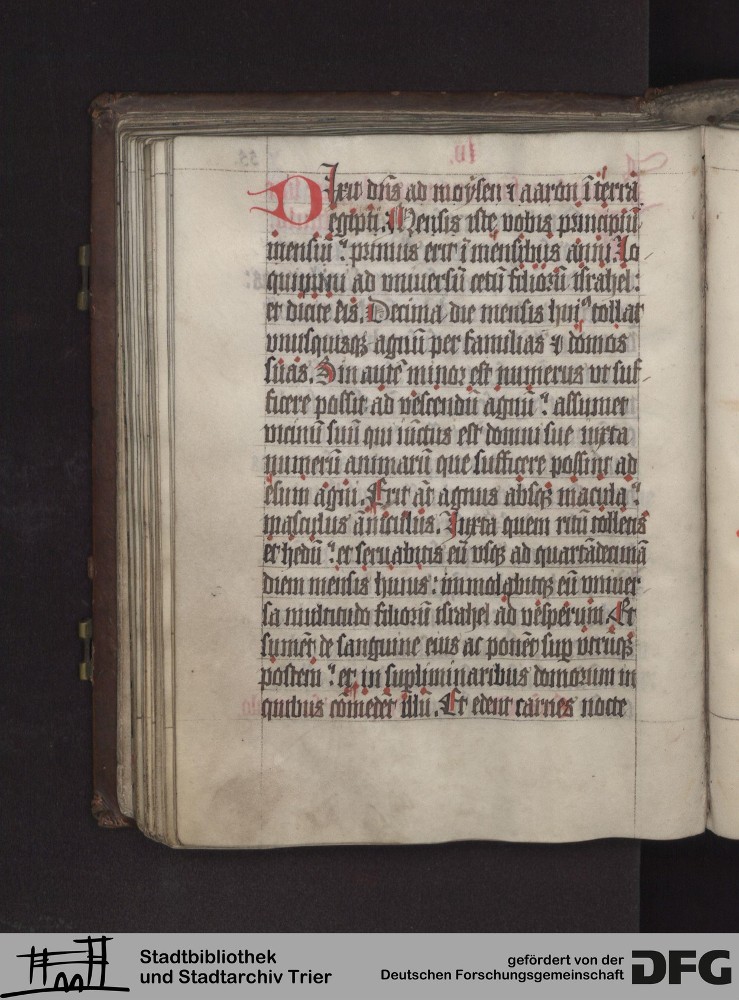 Dixit dn̄s ad moÿsen ⁊ aaron ī terra
egipti. Mensis iste vobis principiū
mensiū : primus erit ī mensibus anni. Lo
quimini ad vniuersū cetū filiorū israhel :
et dicite eis. Decima die mensis huiꝰ tollat
vnusquisqꝫ agnū per familias ⁊ domos
suas. Sin autē minor est numerus vt suf
ficere possit ad vescendū agnū : assumet
vicinū suū qui iūctus est domui sue iuxta
numerū animarū que sufficere possint ad
esum agni. Erit āt agnus absqꝫ macula :
masculus ānictllus. Iuxta quem ritū tolletis
et hedū : et seruabitis eū vsqꝫ ad quartādecimā
diem mensis huius : immolabitqꝫ eū vniuer
sa multitudo filiorū israhel ad vesperum. Et
sumēt de sanguine eius ac ponēt sup vtrūqꝫ
postem : et in supliminaribus domorum in
quibus cōmedēt illū. Et edent carnes nocte
Stadtbibliothek
und Stadtarchiv Trier
gefördert von der
Deutschen Forschungsgemeinschaft
DFG